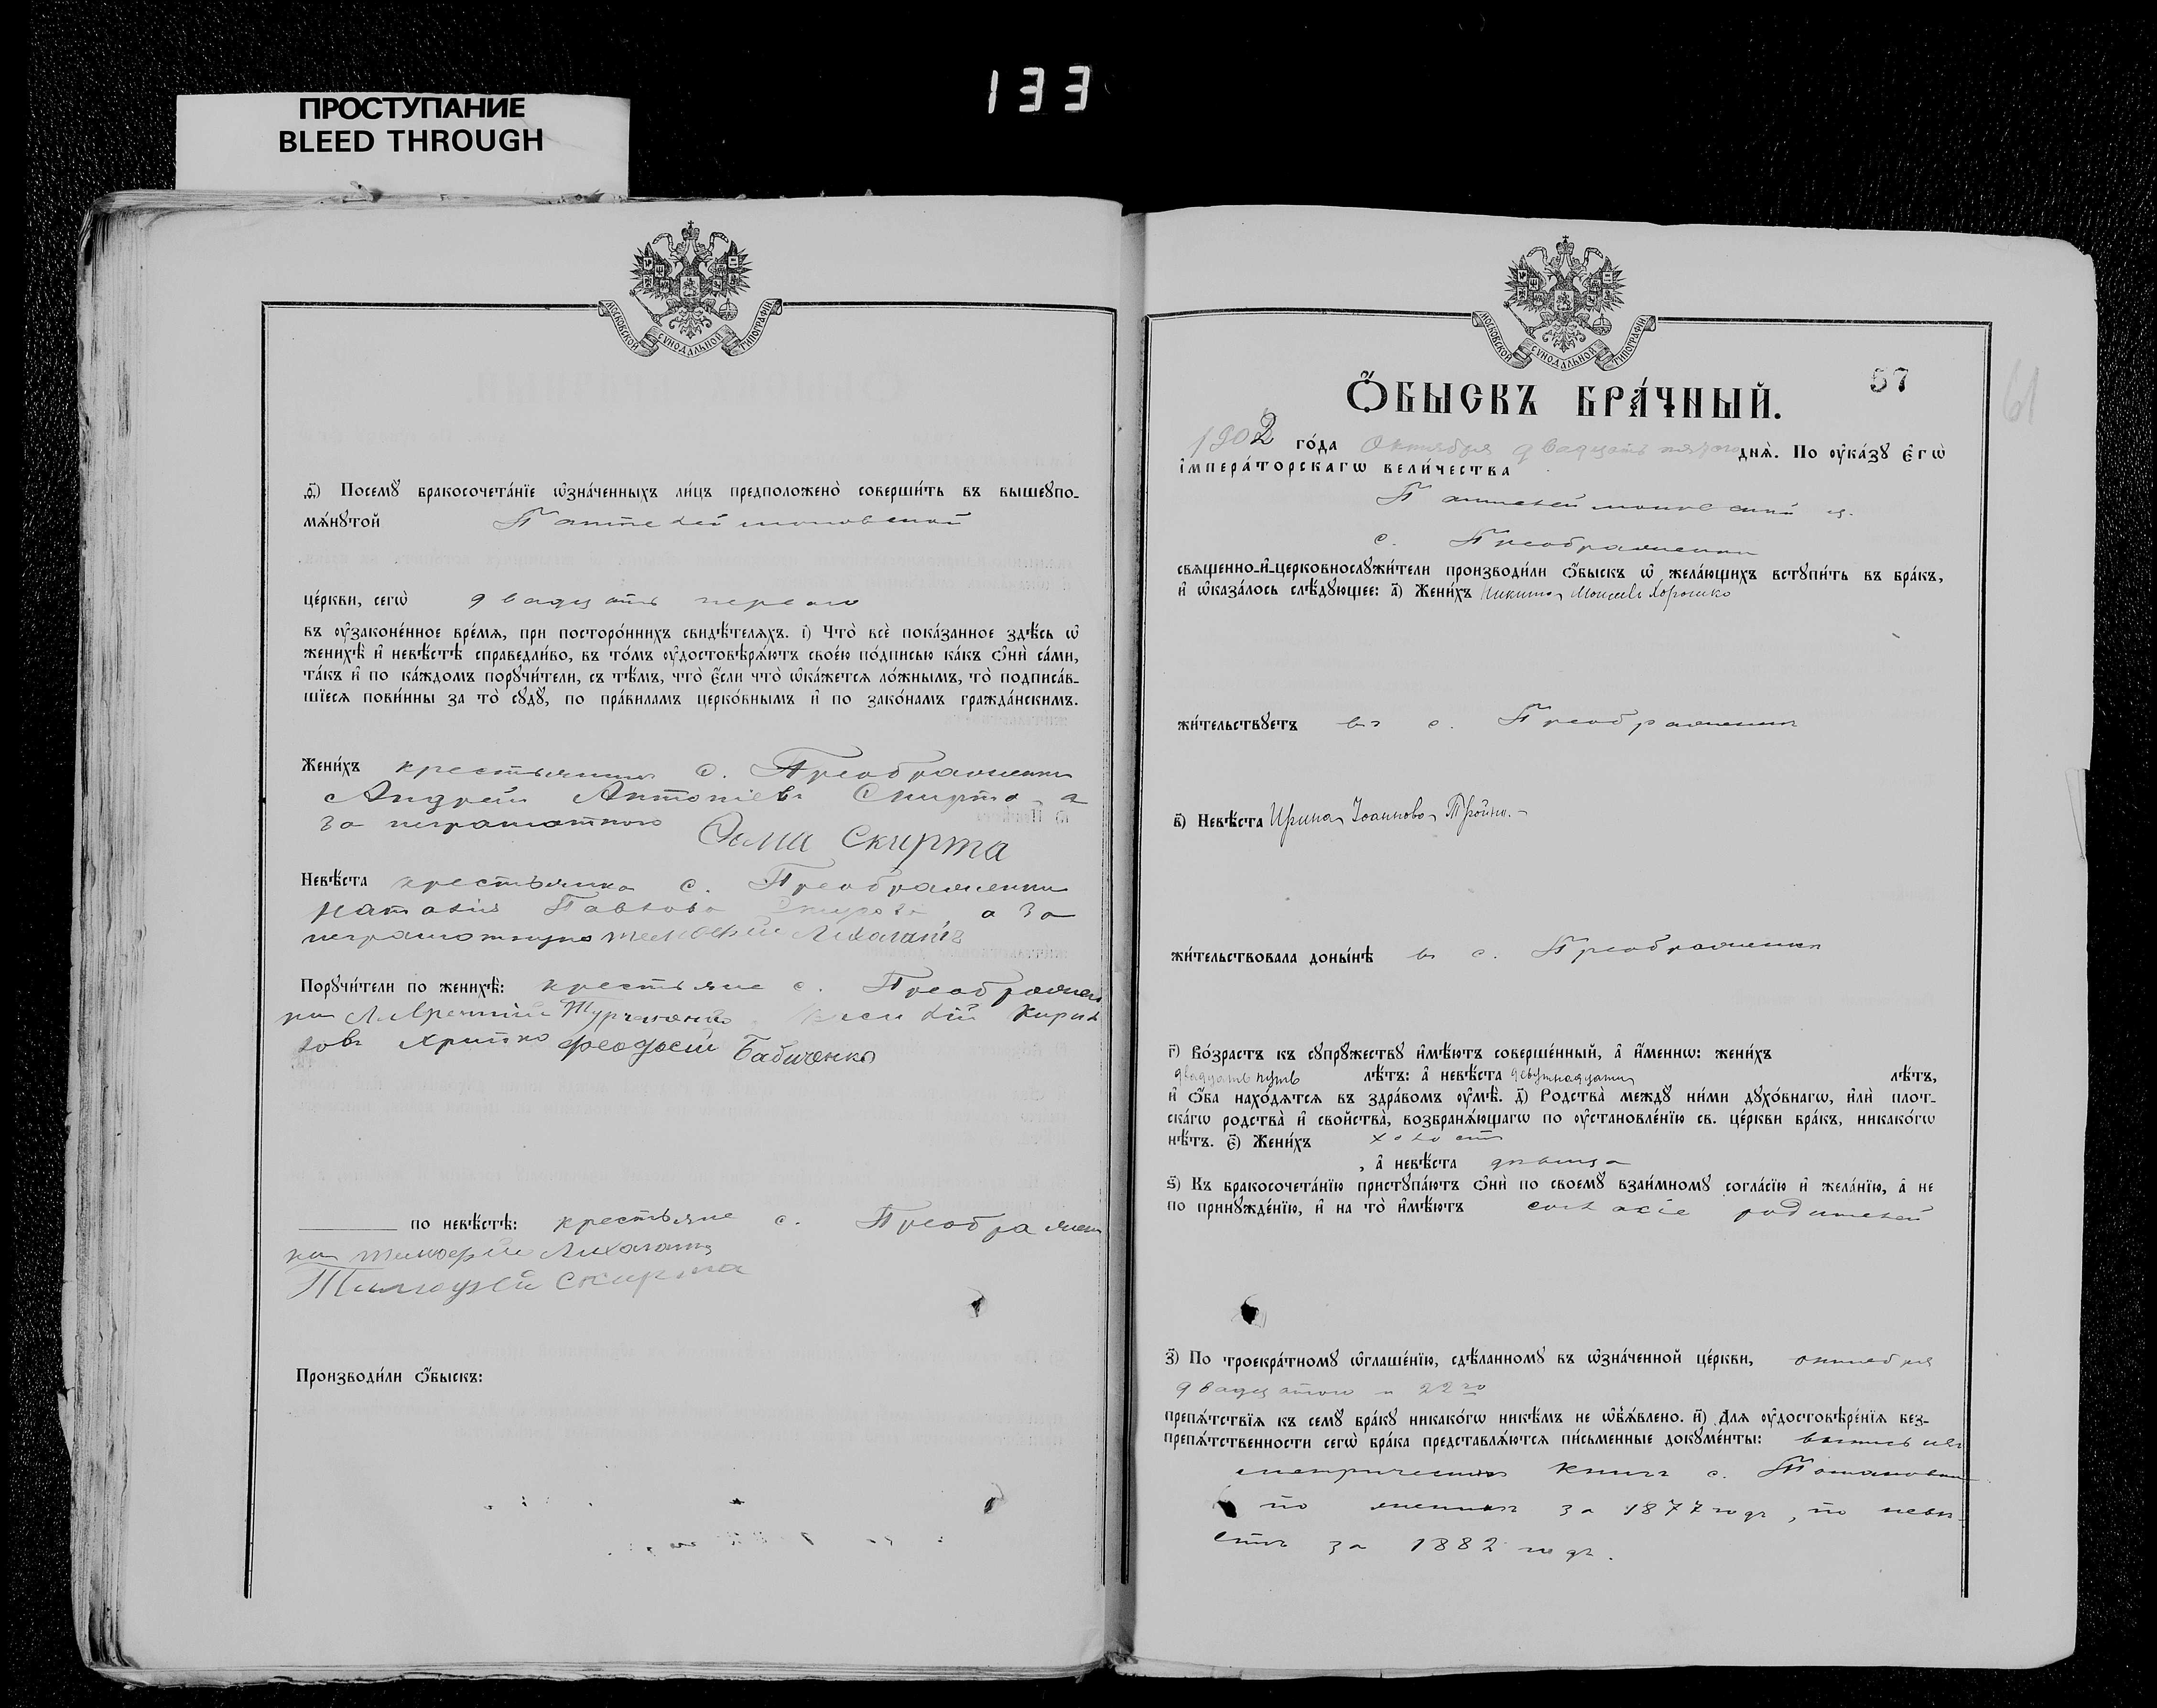 133
ПРОСТУПАНИЕ
BLEED THROUGH
МОСКОВСКОЙ СУНОДАЛЬНОЙ ТИПОГРАФІИ
ѳ҃) Посемꙋ бракосочета́нїе ѡ҆зна́ченныхъ ли́цъ предположено̀ соверши́ть въ вышеꙋпо-
мѧ́нꙋтой Пантелеймоновской
це́ркви, сегѡ̀ двадцать перваго
въ ᲂу҆законе́нное вре́мѧ, при посторо́ннихъ свидѣ́телѧхъ. і҃) Что̀ всѐ пока́занное здѣ́сь ѡ҆
женихѣ̀ и҆ невѣ́стѣ справедли́во, въ то́мъ ᲂу҆достовѣрѧ́ютъ свое́ю по́дписью ка́къ ѻ҆нѝ са́ми,
та́къ и҆ по ка́ждомъ порꙋчи́тели, съ тѣ́мъ, что̀ є҆́сли что̀ ѡ҆ка́жетсѧ ло́жнымъ, то̀ подписа́в-
шїесѧ пови́нны за то̀ сꙋдꙋ̀, по пра́виламъ церко́внымъ и҆ по зако́намъ гражда́нскимъ.
Жени́хъ крестьянинъ с. Преображенки
Андрей Антоніевъ Скирта, а
за неграмотного Ѳома Скирта
Невѣ́ста крестьянка с. Преображенки
Наталія Павлова а за
неграмотную Тимофей
Порꙋчи́тели по женихѣ̀: крестьяне с. Преображен
ки Кирил
ловъ Феодосий Бабиченко
по невѣ́стѣ: крестьяне с. Преображен
ки Тимофей
Тимофей Скирта
Производи́ли ѻ҆́быскъ:
МОСКОВСКОЙ СУНОДАЛЬНОЙ ТИПОГРАФІИ
57
61
Ѻ҆́БЫСКЪ БРА́ЧНЫЙ.
1902 го́да Октября двадцать пятого днѧ̀. По ᲂу҆ка́зꙋ є҆гѡ̀
і҆мпера́торскагѡ вели́чества
Пантелеймоновской ц.
с. Преображенки
свѧщенно-и҆-церковнослꙋжи́тели производи́ли ѻ҆́быскъ ѡ҆ жела́ющихъ встꙋпи́ть въ бра́къ,
и҆ ѡ҆каза́лось слѣ́дꙋющее: а҃) Жени́хъ Никита Моисеевъ Хорошко
жи́тельствꙋетъ въ с. Преображенки
в҃) Невѣ́ста Ирина Іоаннова
жи́тельствовала доны́нѣ въ с. Преображенки
г҃) Во́зрастъ къ сꙋпрꙋ́жествꙋ и҆мѣ́ютъ соверше́нный, а҆ и҆́меннѡ: жени́хъ
двадцать пять лѣ́тъ: а҆ невѣ́ста девятнадцати лѣ́тъ,
и҆ ѻ҆́ба нахо́дѧтсѧ въ здра́вомъ ᲂу҆мѣ̀. д҃) Родства̀ междꙋ̀ ни́ми дꙋхо́внагѡ, и҆лѝ плот-
ска́гѡ родства̀ и҆ сво́йства̀, возбранѧ́ющагѡ по ᲂу҆становле́нїю св. це́ркви бра́къ, никако́гѡ
нѣ́тъ. є҃) Жени́хъ холостъ
, а҆ невѣ́ста дѣвица
ѕ҃) Къ бракосочета́нїю пристꙋпа́ютъ ѻ҆нѝ по своемꙋ̀ взаи́мномꙋ согла́сїю и҆ жела́нїю, а҆ не
по принꙋжде́нїю, и҆ на то̀ и҆мѣ́ютъ согласіе родителей
з҃) По троекра́тномꙋ ѡ҆глаше́нїю, сдѣ́ланномꙋ въ ѡ҆зна́ченной це́ркви, октября
двадцатого и 22го
препѧ́тствїѧ къ семꙋ̀ бра́кꙋ никако́гѡ никѣ́мъ не ѡ҆б̾ѧ́влено. и҃) Длѧ̀ ᲂу҆достовѣре́нїѧ без-
препѧ́тственности сегѡ̀ бра́ка представлѧ́ютсѧ пи́сьменные докꙋме́нты: выпись изъ
метрическихъ книгъ с.
по женихѣ за 1877 годъ, по невѣ-
стѣ за 1882 годъ.